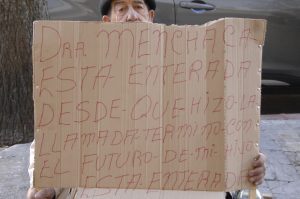 DRA MENCHACA
ESTA ENTERADA
DESDE-QUE HIZO-LA
LLAMADA-TERMINO-CON
EL FUTURO-DE-MI-HIJO
ESTA-ENTERADA